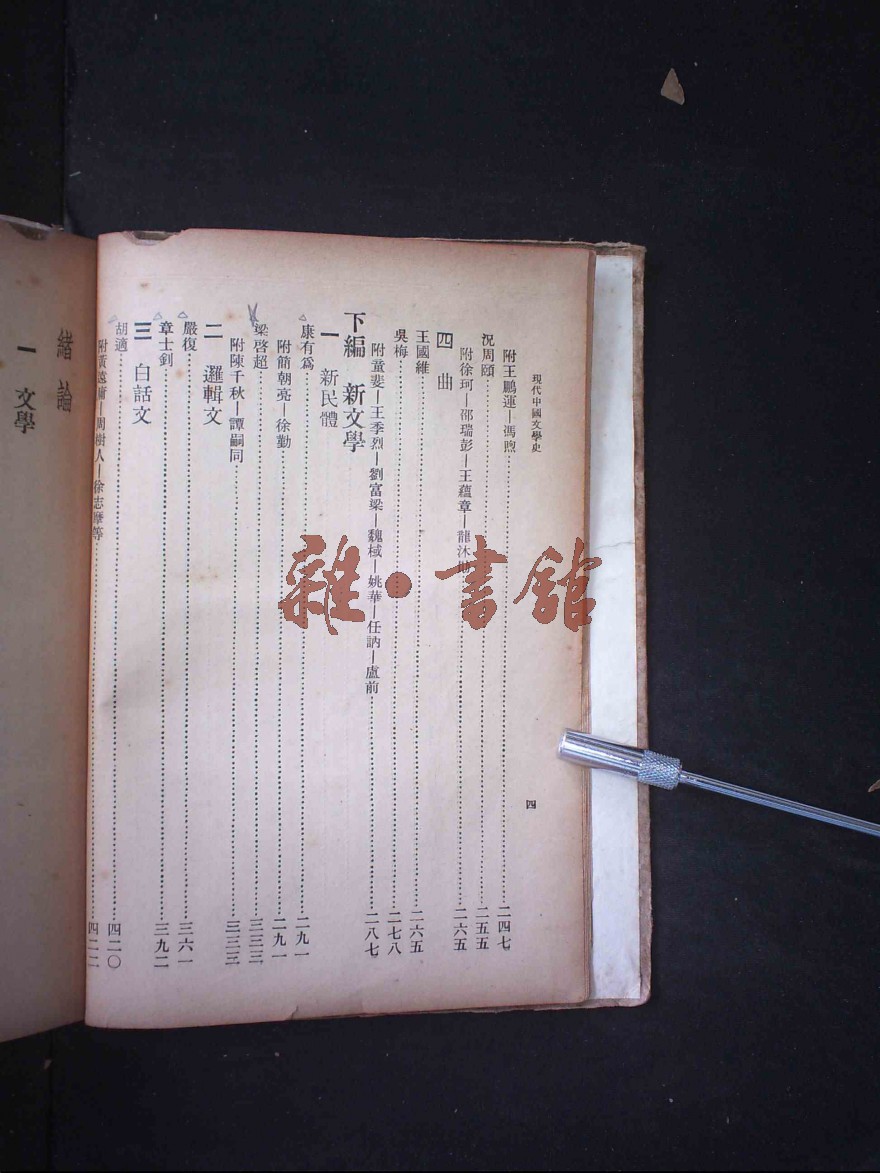 現代中國文學史
四
附王鵬運—馮煦 二四七
況周頤 二五五
附徐珂—邵瑞彭—王蘊章—龍沐 二六五
四 曲
王國維 二六五
吳梅 二七八
附童斐—王季烈—劉富梁—魏棫—姚華—任訥—盧前 二八七
下編 新文學
一 新民體
康有爲 二九一
附簡朝亮—徐勤 二九一
梁啓超 三三三
附陳千秋—譚嗣同 三三三
二 邏輯文
嚴復 三六一
章士釗 三九二
三 白話文
胡適 四二〇
附黃遠庸—周樹人—徐志摩等 四二二
緒論
一 文學
雜·書館